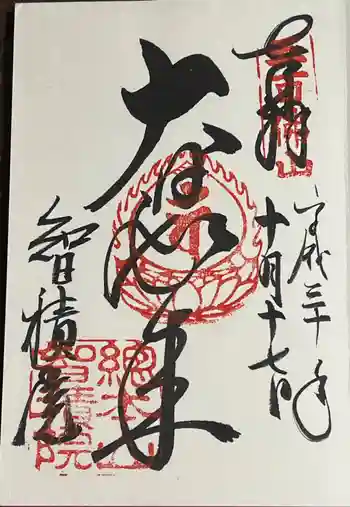 奉拝
平成三十年
十月十七日
大日如来
智積院
総本山
智積院